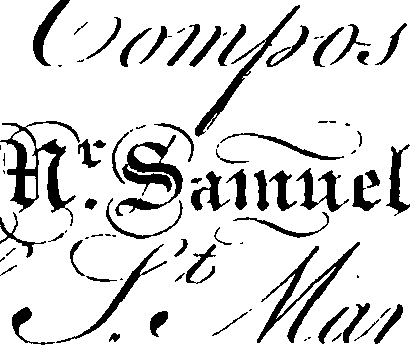 Compos
Mr. Samuel
St. Mar